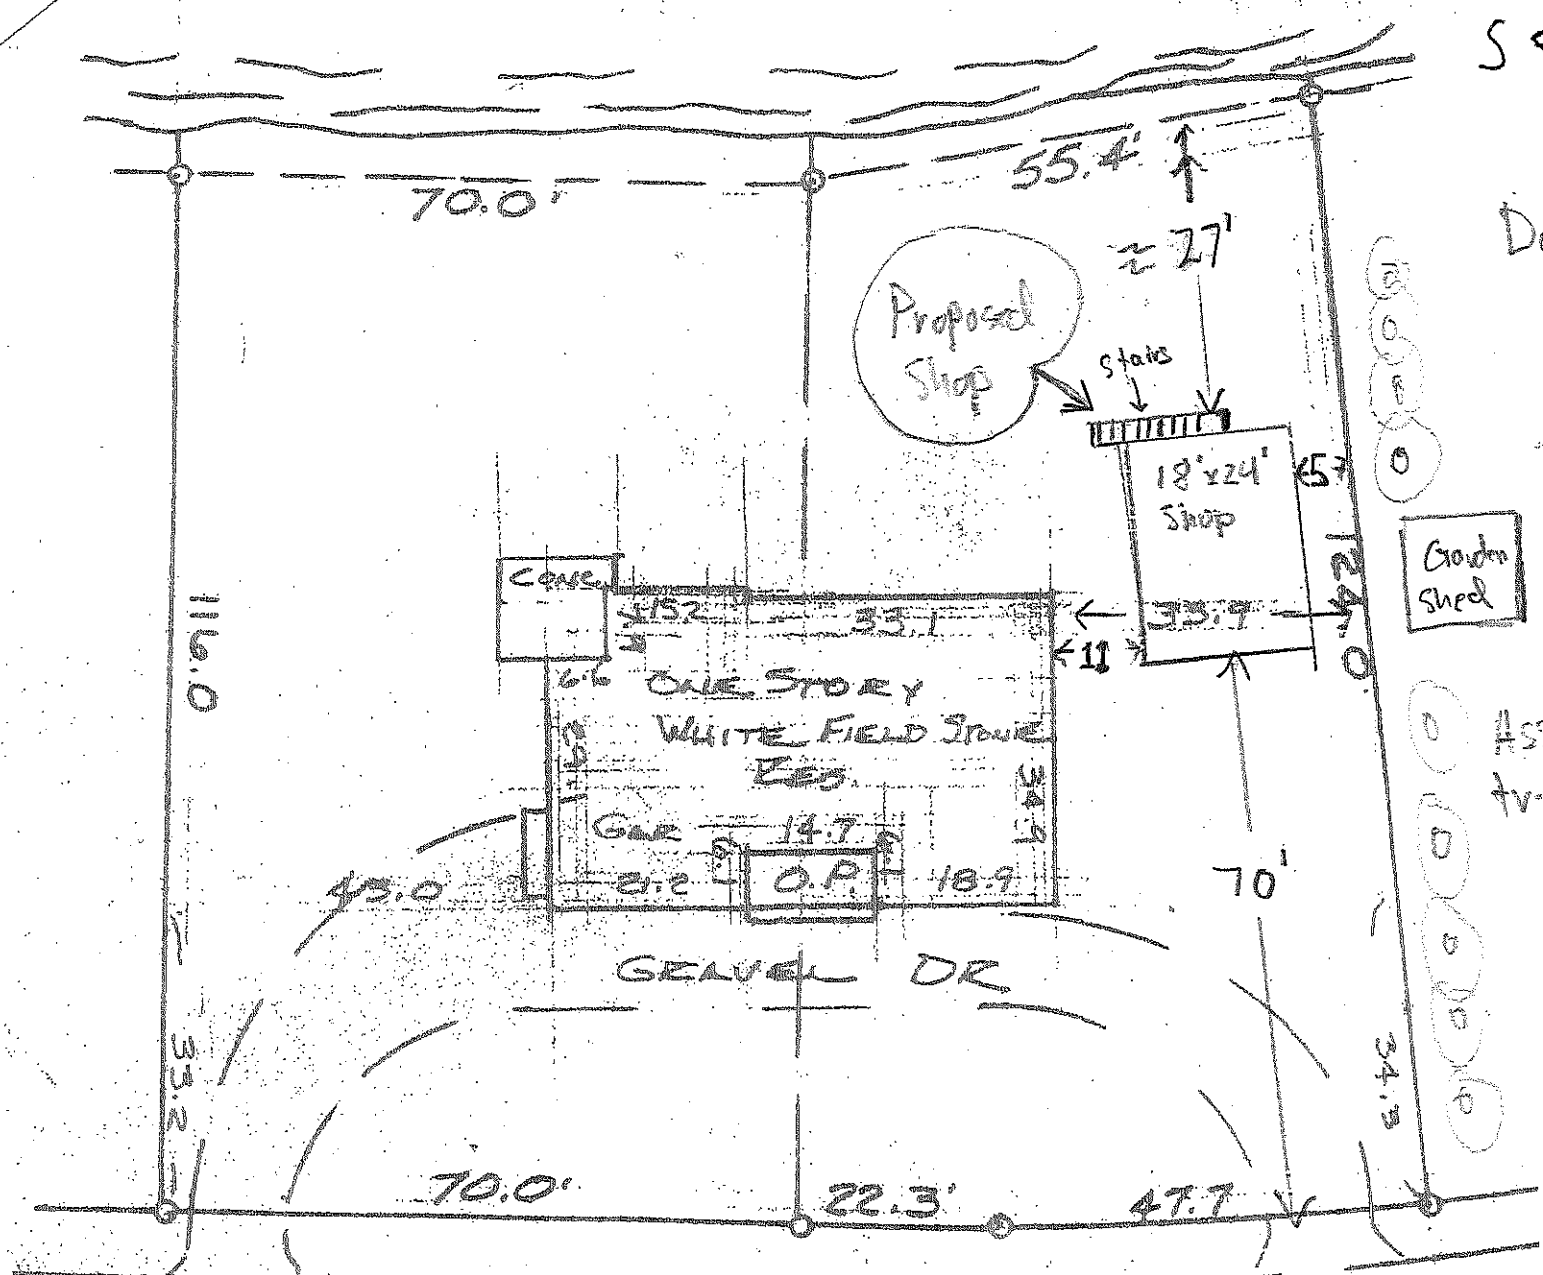 70.0'
55.4'
≈ 27'
Proposed
Shop
Stairs
18'x24'
Shop
5
124.0
Garden
Shed
CONC.
15.2
33.1
33.9
11
6.6
116.0
ONE STORY
WHITE FIELD STONE
RES.
34.9
GAR
14.7
45.0
21.2
O.P.
18.9
70'
GRAVEL DR
33.2
34.3
70.0'
22.3'
47.7